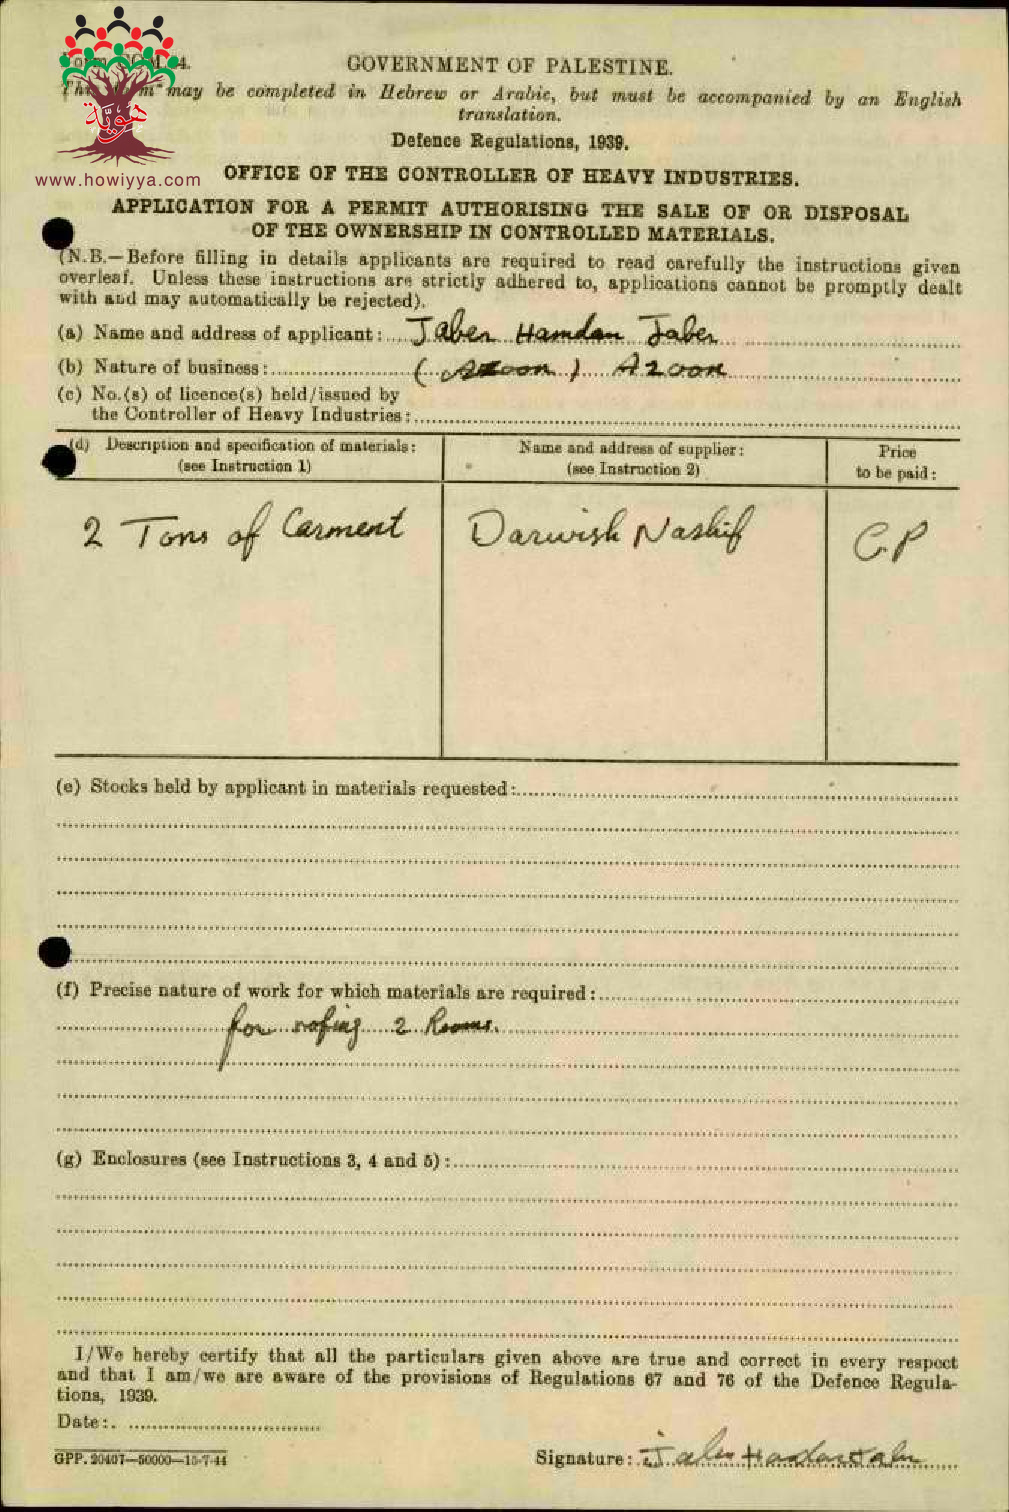 GOVERNMENT OF PALESTINE.
may be completed in Hebrew or Arabic, but must be accompanied by an English
translation.
Defence Regulations, 1939.
هوية
www.howiyya.com
OFFICE OF THE CONTROLLER OF HEAVY INDUSTRIES.
APPLICATION FOR A PERMIT AUTHORISING THE SALE OF OR DISPOSAL
OF THE OWNERSHIP IN CONTROLLED MATERIALS.
(N.B.—Before filling in details applicants are required to read carefully the instructions given
overleaf. Unless these instructions are strictly adhered to, applications cannot be promptly dealt
with and may automatically be rejected).
(a) Name and address of applicant: Jaber Hamdan Jaber
(b) Nature of business: ( Azoon ) Azoon
(c) No.(s) of licence(s) held/issued by
the Controller of Heavy Industries:
(d) Description and specification of materials:
(see Instruction 1)
Name and address of supplier:
(see Instruction 2)
Price
to be paid:
2 Tons of Carment
Darwish Nashif
C.P
(e) Stocks held by applicant in materials requested:
(f) Precise nature of work for which materials are required:
for rofing 2 Rooms.
(g) Enclosures (see Instructions 3, 4 and 5):
I/We hereby certify that all the particulars given above are true and correct in every respect
and that I am/we are aware of the provisions of Regulations 67 and 76 of the Defence Regula-
tions, 1939.
Date:
GPP. 20407—50000—15-7-44
Signature: Jaber Hamdan Jaber